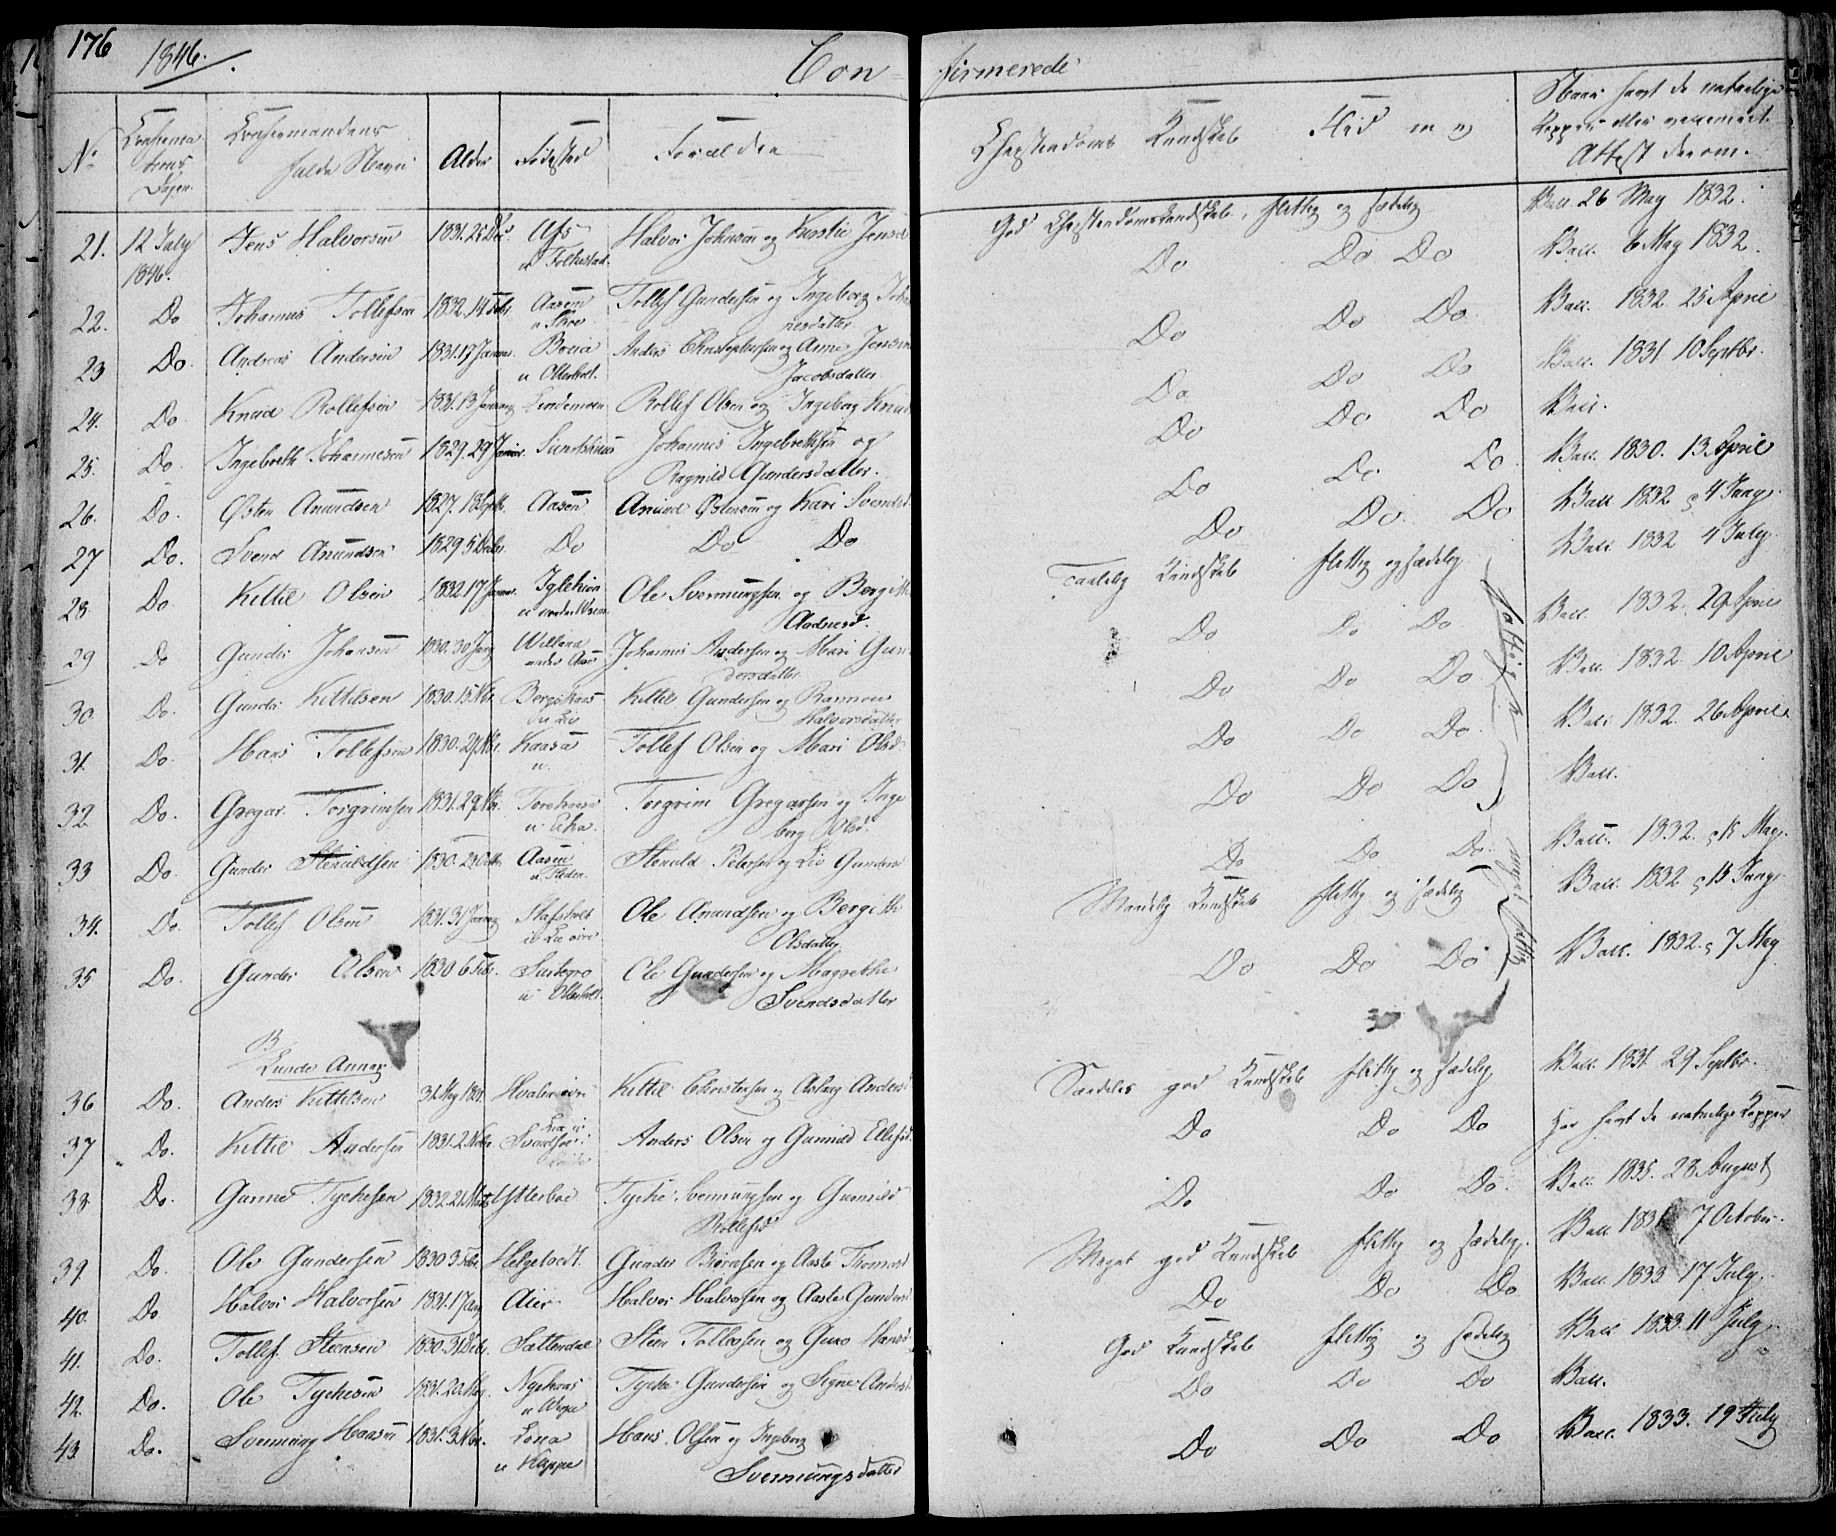 176 1846. Con- firmerede
No Confirmations Dagen. Confirmandens fulde Navn Alder Fødested Forældre Christendoms Kundskab Flid m v Naar havt de naturlige Kopper eller vaccineret. Attest derom.
21. 12 July 1846. Jens Halvorsen 1831. 25 Dec. u Folkestad. Halvor Johnsen og Kirstie Jensd God Christendomskundskab, flittig og sædelig Vacc. 26 May 1832.
22. Do Johannes Tollefsen 1832. 14 Febr. Aasen Tollef Gundersen og Ingeborg Johannesdatter Do Do Do Vacc. 6 May 1832.
23 Do. Andreas Andersen 1831. 17 Januar. u Otterholt. Anders Christophersen og Anne Jensen Jacobsdatter Do Do Do Vacc. 1832. 25 April
24. Do. Knud Rollefsen 1831. 13 Januar Lindemoen Rollef Olsen og Ingeborg Knud Do Do Do Vacc. 1831 10 Septbr.
25. Do. Ingebreth Johannesen 1829. 29 Januar. Johannes Ingebrethsen og Ragnild Gundersdatter. Do Do Do Vacc.
26. Do. Østen Anundsen 1827. 18 Septb. Aasen Anund Østensen og Kari Svendsd. Do Do. Do. Vacc. 1830. 13 April
27 Do. Svend Anundsen 1829 5 Decbr. Do Do Do Do Do. Do Vacc. 1832 4 Juny.
28 Do. Kittil Olsen 1832 17 Januar. Ole Svennungsen og Bergith Aadnesd. Taalelig Kundskab flittig og sædelig. Vacc. 1832 4 July
29 Do Gunder Johansen 1830. 30 Juny Johannes Andersen og Mari Gundersdatter Do Do Do Vacc. 1832. 29 April
30. Do. Gunder Kittilsen 1830. 15 Nbr. Kittil Gundersen og Rannou Halvorsdatter Do Do Do Vacc. 1832. 10 April
31. Do. Hans Tollefsen 1830. 27 Nbr. Kaasa u Tollef Olsen og Mari Olsd Do Do Do Vacc. 1832. 26 April
32. Do. Gregar Torgrimsen 1831. 29 Nbr. u Eika. Torgrim Gregarsen og Ingeborg Olsd. Do Do Do Vacc.
33 Do. Gunder Steruldsen 1830. 23 Octbr. Aasen u Steden. Steruld Petersen og Liv Gunders Do Do Do. Vacc. 1832. 15 May.
34. Do. Tollef Olsen 1831. 31 Januar Ole Anundsen og Bergith Olsdatter Maadelig Kundskab flittig og sædelig Vacc. 1832 15 Juny.
35 Do. Gunder Olsen 1830 6 Febr. u Otterholt. Ole Gundersen og Margrethe Svendsdatter Do Do Do Vacc. 1832. 7 May
B
Lunde Annex
36 Do. Anders Kittilsen 31 May 1831. Kittil Christensen og Aslaug Anders Særdeles god Kundskab flittig og sædelig Vacc. 1831. 29 Septbr.
37 Do. Kittil Andersen 1831. 2 Nobr. Anders Olsen og Gunnild Ellefsd. Do Do Do Har havt de naturlige Kopper
38 Do. Gunner Tyckesen 1832. 21 Marts Ytterboe Tycke Svennungsen og Gunnild Rollefsd Do Do Do. Vacc. 1835. 28 August
39. Do. Ole Gundersen 1830 3 Febr. Helgetvedt. Gunder Biørnsen og Aaste Thomasd Meget god Kundskab flittig og sædelig. Vacc 1831 7 October.
40. Do Halvor Halvorsen 1831. 1 Juny Aier Halvor Halvorsen og Aaste Gundersd Do Do Do Vacc. 1833 17 July.
41. Do. Tollef Steensen 1830. 31 Decbr. Sattendal Steen Tollefsen og Guro Hansd. God Kundskab flittig og sædelig Vacc 1833. 11 July.
42. Do. Ole Tyckesen 1831. 22 May Nyehuus Tycke Gundersen og Signe Andersd Do Do Do Vacc.
43. Do. Svennung Hansen 1831. 3 Nbr. Lona u Kappa Hans Olsen og Ingeborg Svennungsdatter Do Do Do Vacc. 1833. 19 July